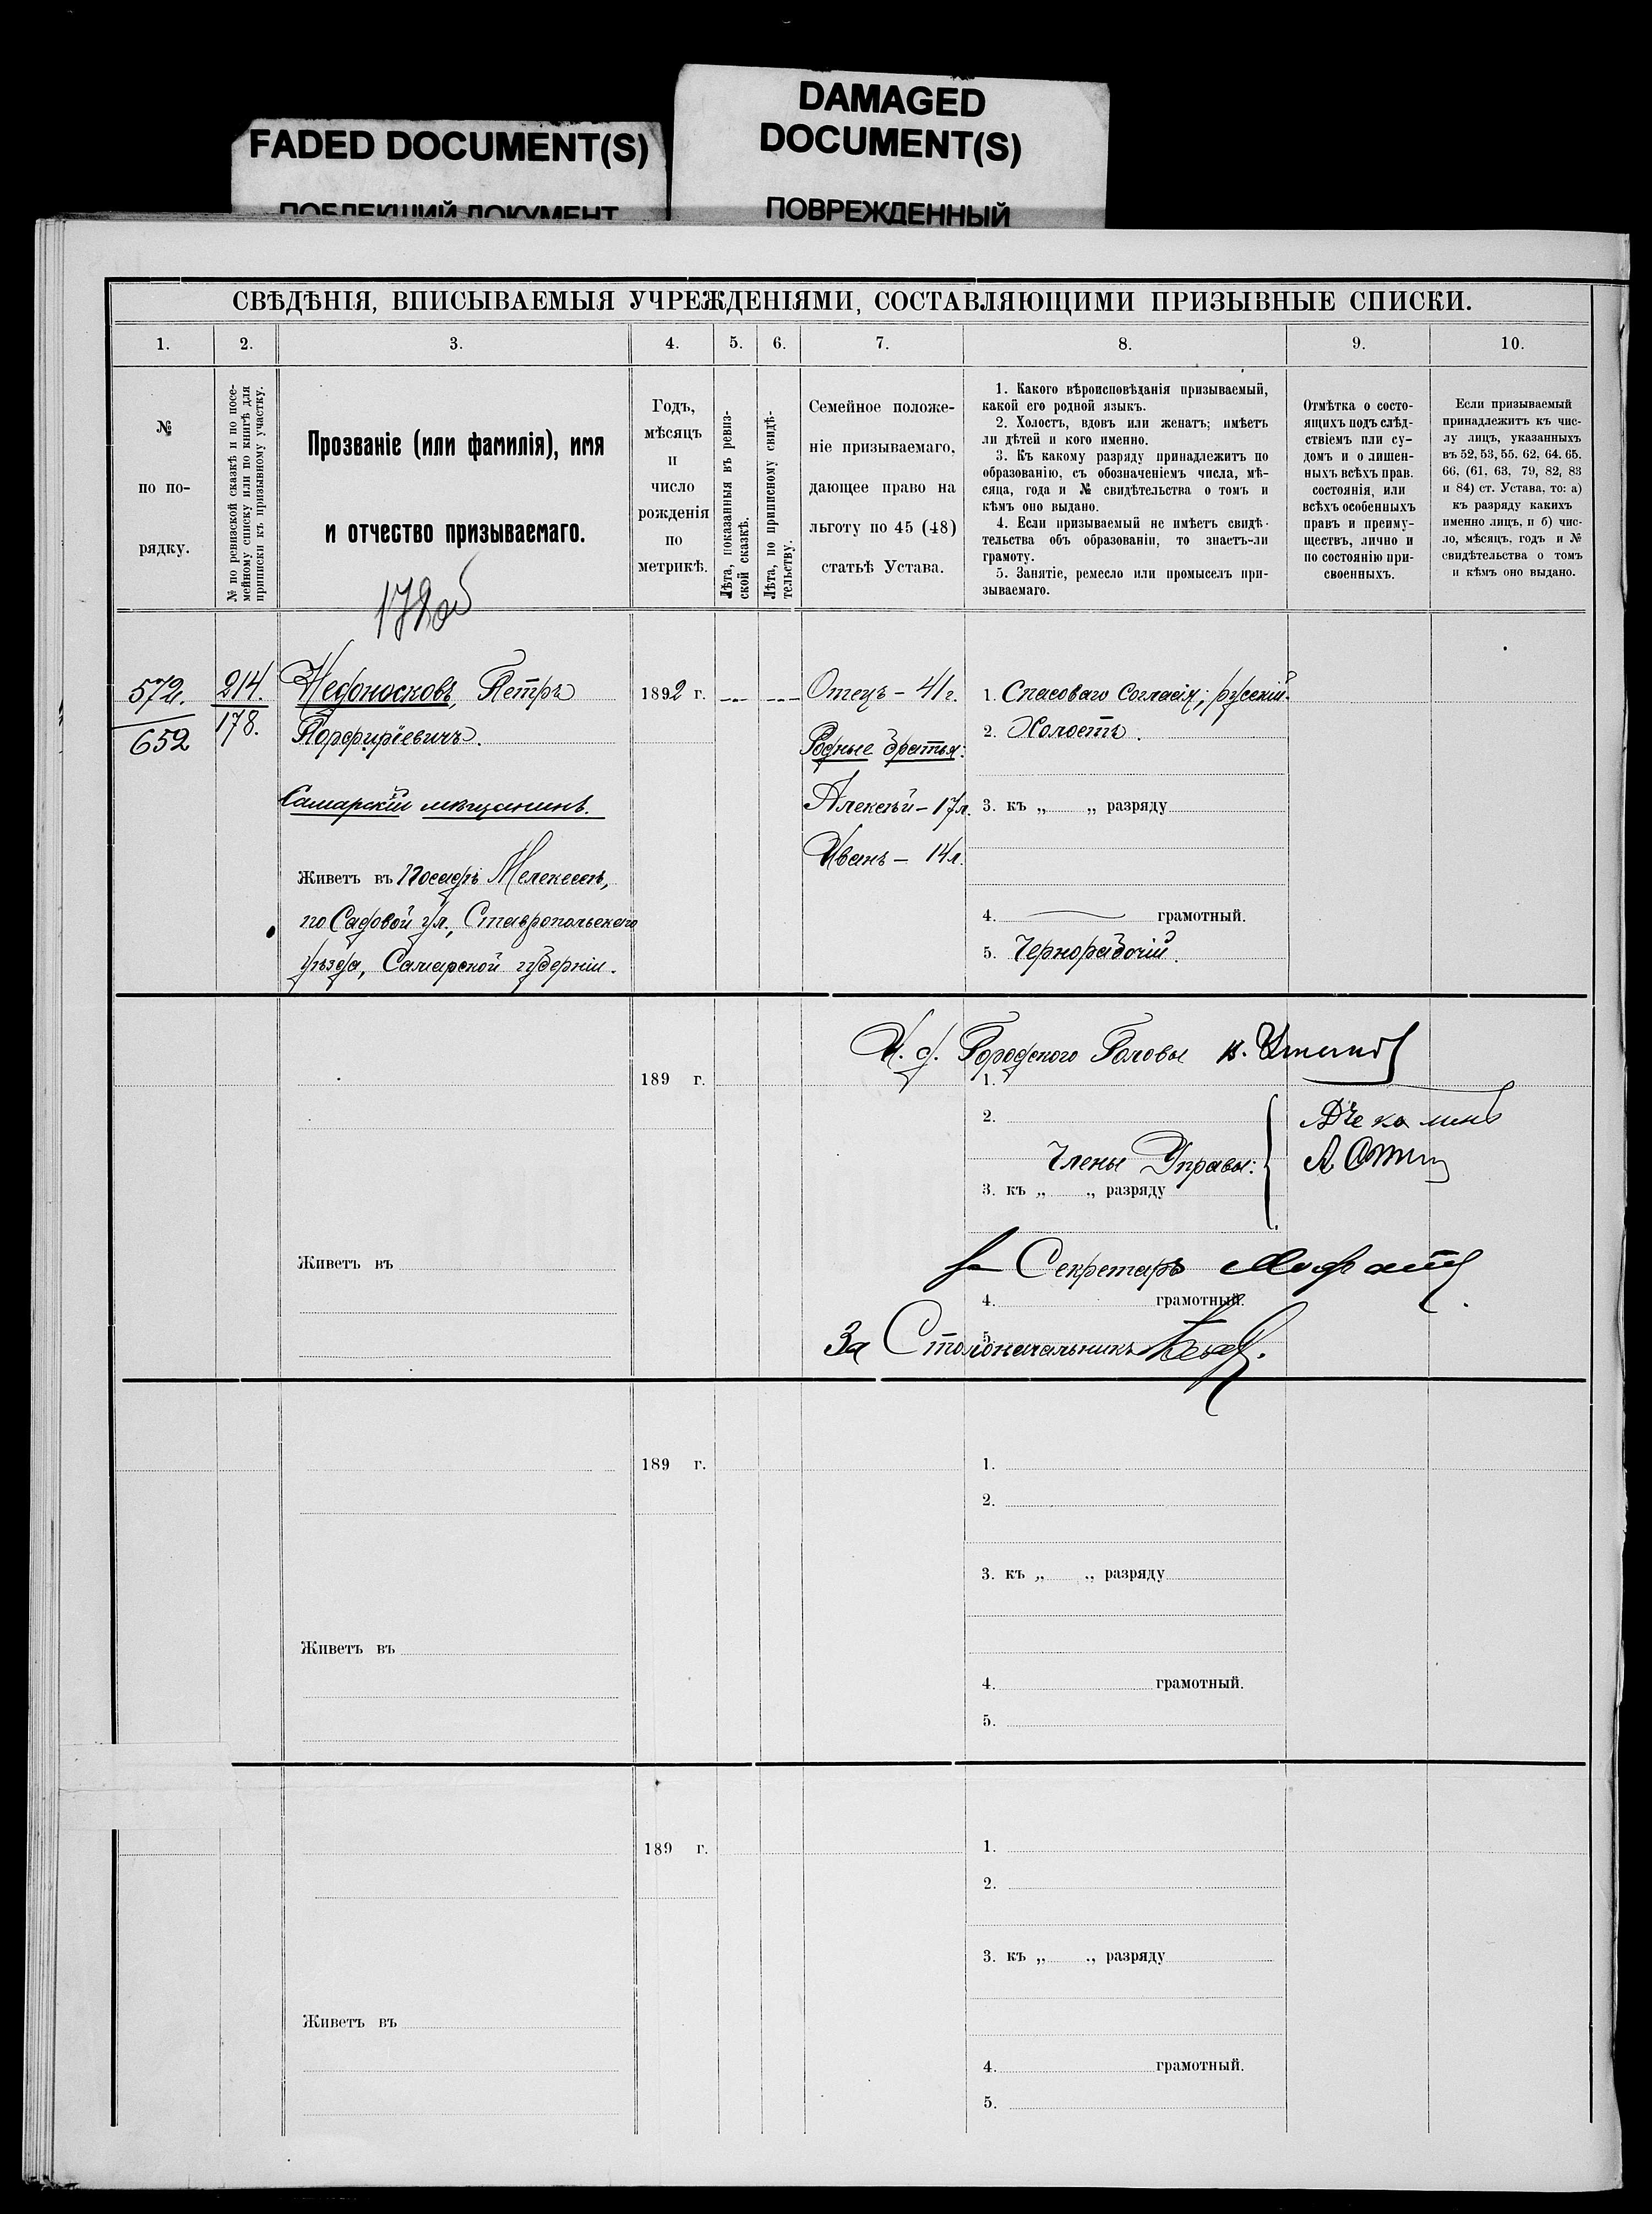 FADED DOCUMENT(S)
ПОБЛЕКШИЙ ДОКУМЕНТ
DAMAGED
DOCUMENT(S)
ПОВРЕЖДЕННЫЙ
СВѢДѢНІЯ, ВПИСЫВАЕМЫЯ УЧРЕЖДЕНІЯМИ, СОСТАВЛЯЮЩИМИ ПРИЗЫВНЫЕ СПИСКИ.
1. 2. 3. 4. 5. 6. 7. 8. 9. 10.
№
по по-
рядку.
№ по ревизской сказкѣ и по посе-
мейному списку или по книгѣ для
приписки къ призывному участку.
Прозваніе (или фамилія), имя
и отчество призываемаго.
Годъ,
мѣсяцъ
и
число
рожденія
по
метрикѣ.
Лѣта, показанныя въ ревиз-
ской сказкѣ.
Лѣта, по приписному свидѣ-
тельству.
Семейное положе-
ніе призываемаго,
дающее право на
льготу по 45 (48)
статьѣ Устава.
1. Какого вѣроисповѣданія призываемый,
какой его родной языкъ.
2. Холостъ, вдовъ или женатъ; имѣетъ
ли дѣтей и кого именно.
3. Къ какому разряду принадлежитъ по
образованію, съ обозначеніемъ числа, мѣ-
сяца, года и № свидѣтельства о томъ и
кѣмъ оно выдано.
4. Если призываемый не имѣетъ свидѣ-
тельства объ образованіи, то знаетъ-ли
грамоту.
5. Занятіе, ремесло или промыселъ при-
зываемаго.
Отмѣтка о состо-
ящихъ подъ слѣд-
ствіемъ или су-
домъ и о лишен-
ныхъ всѣхъ прав.
состоянія, или
всѣхъ особенныхъ
правъ и преиму-
ществъ, лично и
по состоянію при-
своенныхъ.
Если призываемый
принадлежитъ къ чис-
лу лицъ, указанныхъ
въ 52, 53, 55. 62, 64. 65.
66, (61, 63, 79, 82, 83
и 84) ст. Устава, то: а)
къ разряду какихъ
именно лицъ, и б) чис-
ло, мѣсяцъ, годъ и №
свидѣтельства о томъ
и кѣмъ оно выдано.
572.
652
214.
178.
Недоносковъ, Петръ
Порфирiевичъ.
Самарскiй мѣщанинъ.
Живетъ въ Посадѣ Мелекесѣ,
по Садовой ул., Ставропольскаго
уѣзда, Самарской губернiи.
1892 г.
Отецъ – 41 г.
Родные братья:
Алексѣй – 17 л.
Иванъ – 14 л.
1. Спасоваго Согласiя; русскiй.
2. Холостъ.
3. къ „ „ разряду
4. грамотный.
5. Чернорабочiй.
И. д. Городского Головы
Члены Управы:
Секретарь
За Столоначальника
189 г.
1.
2.
3. къ „ „ разряду
4. грамотный.
5.
Живетъ въ
189 г.
1.
2.
3. къ „ „ разряду
4. грамотный.
5.
Живетъ въ
189 г.
1.
2.
3. къ „ „ разряду
4. грамотный.
5.
Живетъ въ